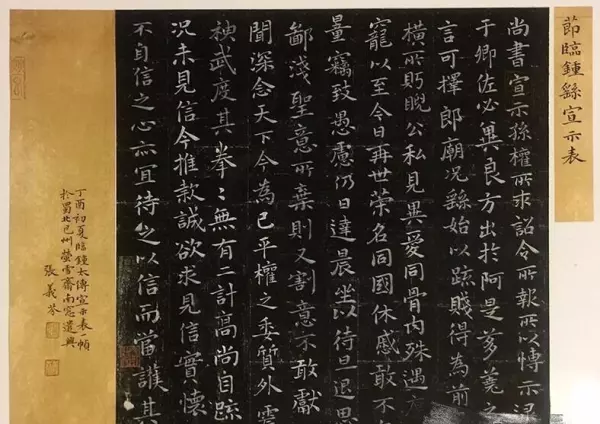 節臨鍾繇宣示表
尚書宣示孫權所求詔令所報所以博示逮
于卿佐必冀良方出於阿是芻蕘之
言可擇郎廟況繇始以疏賤得為前
橫所眄睨公私見異愛同骨肉殊遇厚
寵以至今日再世榮名同國休慼敢不
量竊致愚慮仍日達晨坐以待旦退思
鄙淺聖意所棄則又割意不敢獻
聞深念天下今為已平權之委質外震
神武度其拳〻無有二計高尚自疏
況未見信今推款誠欲求見信實懷
不自信之心亦宜待之以信而當護其
丁酉初夏臨鍾太傅宣示表一幀
於蜀北巴州螢雪齋南窓遣興
張義芬